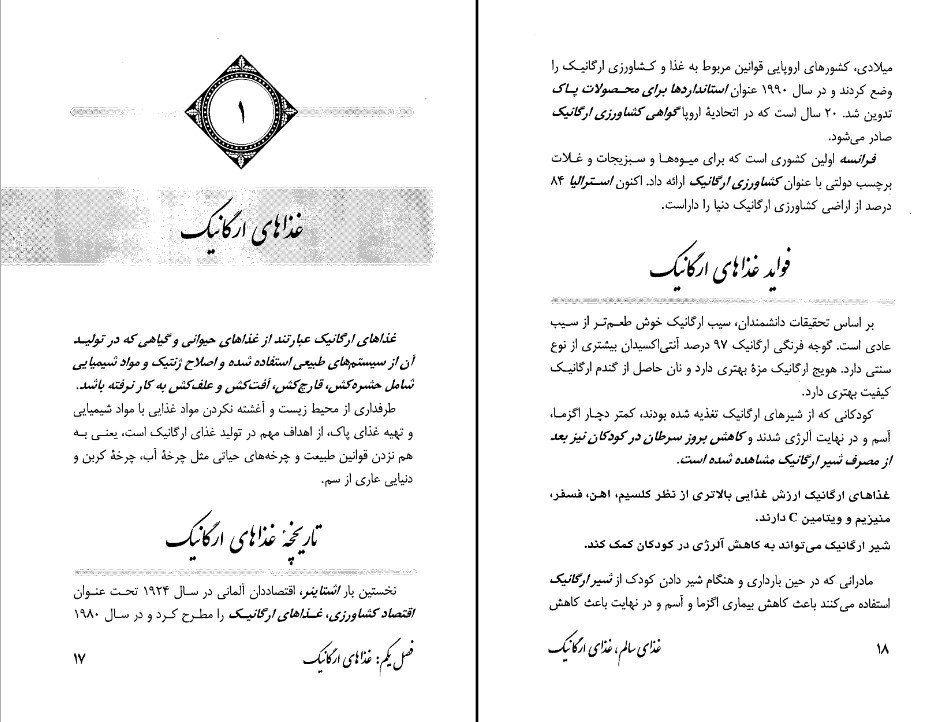 ۱
غذاهای ارگانیک
غذاهای ارگانیک عبارتند از غذاهای حیوانی و گیاهی که در تولید
آن از سیستم‌های طبیعی استفاده شده و اصلاح ژنتیک و مواد شیمیایی
شامل حشره‌کش، قارچ‌کش، آفت‌کش و علف‌کش به کار نرفته باشد.
طرفداری از محیط زیست و آغشته نکردن مواد غذایی با مواد شیمیایی
و تهیه غذای پاک، از اهداف مهم در تولید غذای ارگانیک است، یعنی به
هم نزدن قوانین طبیعت و چرخه‌های حیاتی مثل چرخهٔ آب، چرخهٔ کربن و
دنیایی عاری از سم.
تاریخچهٔ غذاهای ارگانیک
نخستین بار اشتاینر، اقتصاددان آلمانی در سال ۱۹۲۴ تحت عنوان
اقتصاد کشاورزی، غذاهای ارگانیک را مطرح کرد و در سال ۱۹۸۰
فصل یکم: غذاهای ارگانیک ۱۷
میلادی، کشورهای اروپایی قوانین مربوط به غذا و کشاورزی ارگانیک را
وضع کردند و در سال ۱۹۹۰ عنوان استانداردها برای محصولات پاک
تدوین شد. ۲۰ سال است که در اتحادیهٔ اروپا گواهی کشاورزی ارگانیک
صادر می‌شود.
فرانسه اولین کشوری است که برای میوه‌ها و سبزیجات و غلات
برچسب دولتی با عنوان کشاورزی ارگانیک ارائه داد. اکنون استرالیا ۸۴
درصد از اراضی کشاورزی ارگانیک دنیا را داراست.
فواید غذاهای ارگانیک
بر اساس تحقیقات دانشمندان، سیب ارگانیک خوش طعم‌تر از سیب
عادی است. گوجه فرنگی ارگانیک ۹۷ درصد آنتی‌اکسیدان بیشتری از نوع
سنتی دارد. هویج ارگانیک مزهٔ بهتری دارد و نان حاصل از گندم ارگانیک
کیفیت بهتری دارد.
کودکانی که از شیرهای ارگانیک تغذیه شده بودند، کمتر دچار اگزما،
آسم و در نهایت آلرژی شدند و کاهش بروز سرطان در کودکان نیز بعد
از مصرف شیر ارگانیک مشاهده شده است.
غذاهای ارگانیک ارزش غذایی بالاتری از نظر کلسیم، اهن، فسفر،
منیزیم و ویتامین C دارند.
شیر ارگانیک می‌تواند به کاهش آلرژی در کودکان کمک کند.
مادرانی که در حین بارداری و هنگام شیر دادن کودک از شیر ارگانیک
استفاده می‌کنند باعث کاهش بیماری اگزما و آسم و در نهایت باعث کاهش
۱۸ غذای سالم، غذای ارگانیک